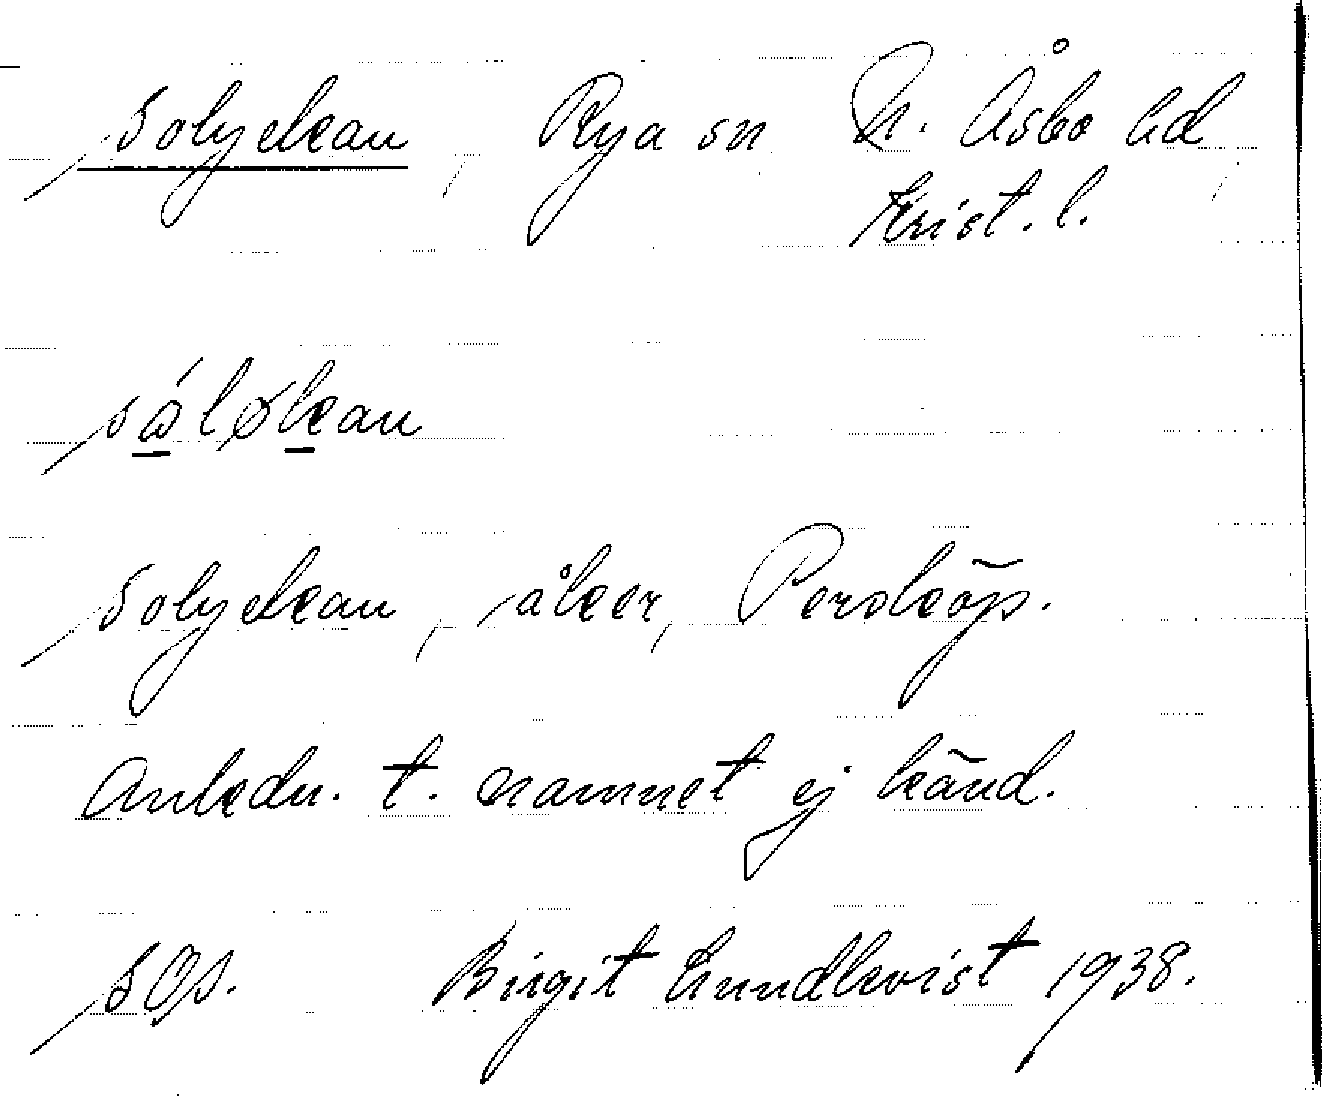 Solyckan, Rya sn N. Åsbo hd,
Krist. l.
sáløkan
Solyckan, åker, Perskōp.
Anledn. t. namnet ej känd.
SOs. Birgit Lundkvist 1938.